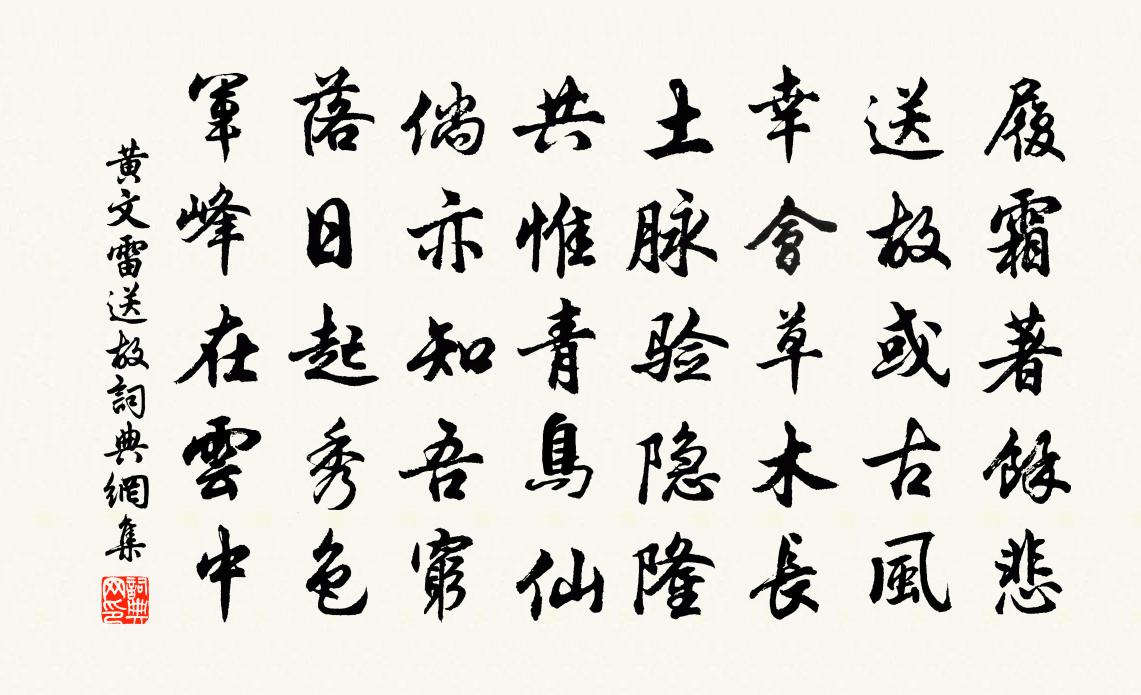 履霜著餘悲
送故或古風
幸會草木長
土脉验隐隆
共惟青鳥仙
倘亦知吾窮
落日起秀色
軍峰在雲中
黄文雷送故詞典網集
詞典網印